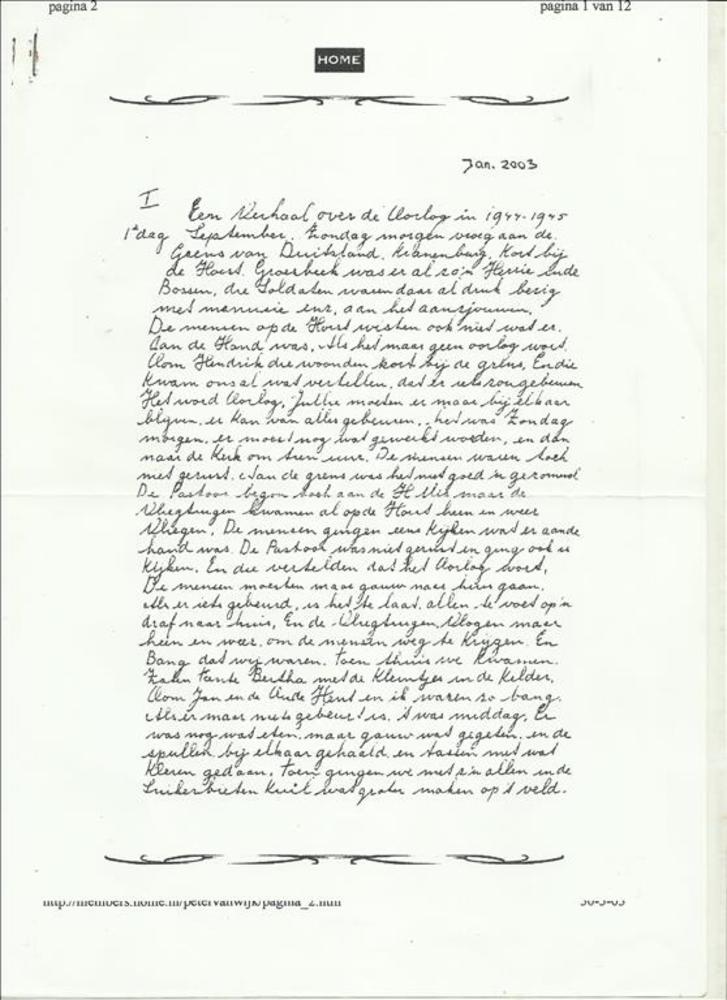 pagina 2 pagina 1 van 12
HOME
Jan. 2003
I
Een Verhaal over de Oorlog in 1944-1945
1e dag September. Zondag morgen vroeg aan de
Grens van Duitsland. Kranenburg, Kort bij
de Horst. Groesbeek was er al zo'n Herrie in de
Bossen, die Soldaten waren daar al druk bezig
met manuvrie enz, aan het aansjouwen.
De mensen op de Horst wisten ook niet wat er.
Aan de Hand was, Als het maar geen oorlog wort.
Oom Hendrik die woonden kort bij de grens, En die
Kwam ons al wat vertellen, dat er iets zou gebeuren
Het word Oorlog, Jullie moeten er maar bij elkaar
blijven, er Kan van alles gebeuren, het was Zondag
morgen, er moest nog wat gewerkt worden, en dan
naar de Kerk om tien uur. De mensen waren toch
niet gerust. Aan de grens was het niet goed
De Pastoor begon toch aan de H Mis maar de
Vliegtuigen kwamen al op de Horst heen en weer
Vliegen. De mensen gingen eens Kijken wat er aan de
hand was. De Pastoor was niet gerust en ging ook is
Kijken. En die vertelden dat het Oorlog wort,
De mensen moesten maar gauw naar huis gaan,
Als er iets gebeurd, is het te laat, allen te voet op 'n
draf naar huis, En de Vliegtuigen Vlogen maar
heen en weer, om de mensen weg te Krijgen. En
Bang dat wij waren. Toen thuis we Kwamen.
Zaten Tante Bertha met de Kleintjes in de Kelder,
Oom Jan en de Oude Hent en ik waren zo bang.
Als er maar niets gebeurt is. 't was middag. Er
was nog wat eten, maar gauw wat gegeten, en de
spullen bij elkaar gehaald, en tassen met wat
Kleren gedaan, Toen gingen we met z'n allen in de
Suikerbieten Kuil wat groter maken op 't veld.
http://members.home.nl/petervanwijk/pagina_2.htm 30-3-05